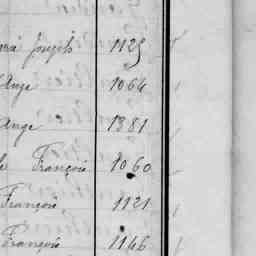 Joseph 1125
Ange 1064
Ange 1381
François 1060
François 1121
François 1146